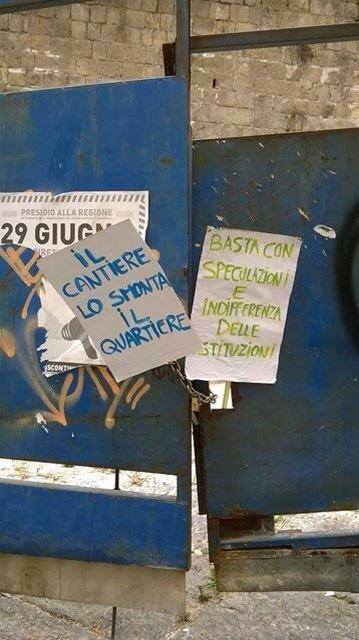 PRESIDIO ALLA REGIONE
29 GIUGN
IL
CANTIERE
LO SMONTA
IL
QUARTIERE
BASTA CON
SPECULAZIONI
E
INDIFFERENZA
DELLE
ISTITUZIONI